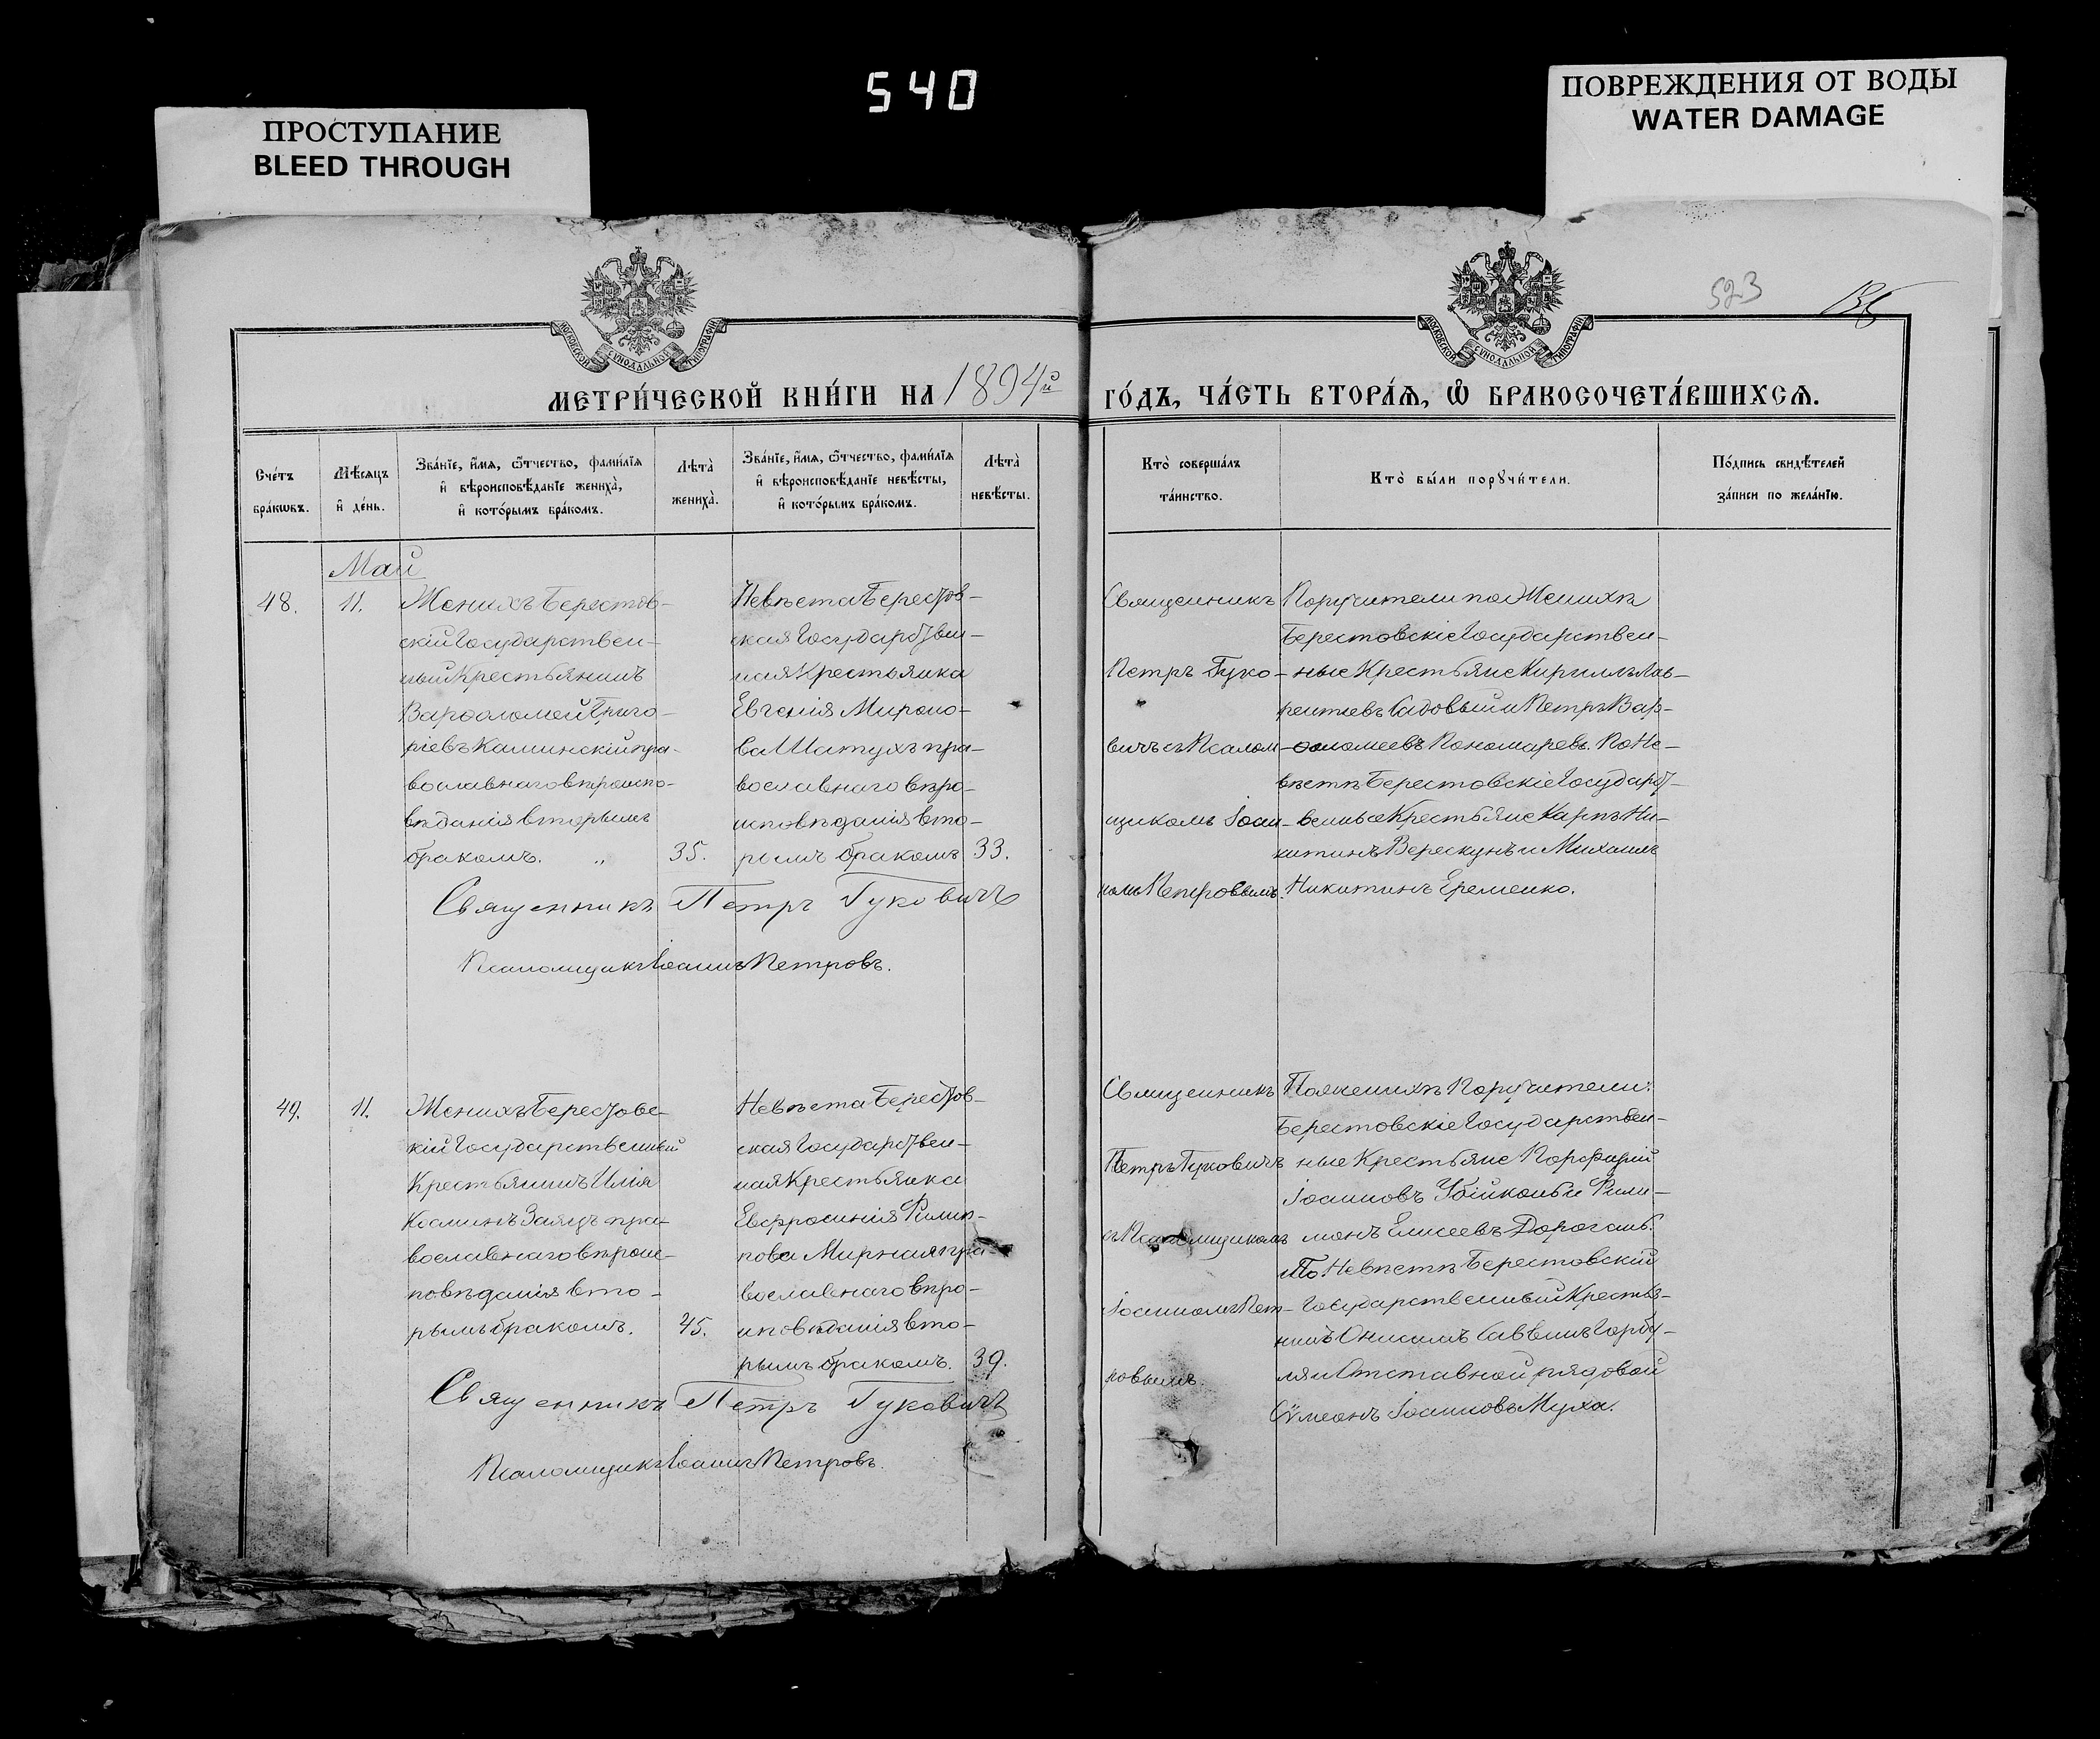 540
ПРОСТУПАНИЕ
BLEED THROUGH
ПОВРЕЖДЕНИЯ ОТ ВОДЫ
WATER DAMAGE
523
МОСКОВСКОЙ СѴНОДАЛЬНОЙ ТИПОГРАФІИ
МОСКОВСКОЙ СѴНОДАЛЬНОЙ ТИПОГРАФІИ
МЕТРИ́ЧЕСКОЙ КНИ́ГИ НА 1894й
ГО́ДЪ, ЧА́СТЬ ВТОРА́Ѧ, Ѡ҆ БРАКОСОЧЕТА́ВШИХСѦ.
Сче́тъ
бра́кѡвъ.
Мѣ́сяцъ
и҆ де́нь.
Зва́нїе, и҆́мѧ, ѻ҆́тчество, фами́лїѧ
и҆ вѣроисповѣ́данїе жениха̀,
и҆ кото́рымъ бра́комъ.
Лѣта̀
жениха̀.
Зва́нїе, и҆́мѧ, ѻ҆́тчество, фами́лїѧ
и҆ вѣроисповѣ́данїе невѣ́сты,
и҆ кото́рымъ бра́комъ.
Лѣта̀
невѣ́сты.
Кто̀ соверша́лъ
та́инство.
Кто̀ бы́ли порꙋчи́тели.
По́дпись свидѣ́телей
за́писи по жела́нїю.
Май
48.
11.
Женихъ Берестов-
скій Государствен-
ный Крестьянинъ
Варѳоломей Григо-
ріевъ Калинскій пра-
вославнаго вѣроиспо-
вѣданія вторымъ
бракомъ. „
35.
Невѣста Берестов-
ская Государствен-
ная Крестьянка
Евгенія Мироно-
ва Шатухъ пра-
вославнаго вѣро-
исповѣданія вто-
рымъ бракомъ
33.
Священникъ
Петръ Гуко-
вичъ съ Псалом-
щикомъ Іоан-
номъ Петровымъ.
Поручители по Женихѣ
Берестовскіе Государствен-
ные Крестьяне Кириллъ Лав-
рентіевъ Садовый и Петръ Вар-
ѳоломеевъ Пономаревъ. По Не-
вѣстѣ Берестовскіе Государст-
венные Крестьяне Карпъ Ни-
китинъ Верескунъ и Михаилъ
Никитинъ Еременко.
Священникъ Петръ Гуковичъ
Псаломщикъ Іоаннъ Петровъ.
49.
11.
Женихъ Берестовс-
кій Государственный
Крестьянинъ Илія
Косминъ Заяцъ пра-
вославнаго вѣроис-
повѣданія вто-
рымъ бракомъ.
45.
Невѣста Берестов-
ская Государствен-
ная Крестьянка
Евфросинія Филип-
пова Мирная пра-
вославнаго вѣро-
исповѣданія вто-
рымъ бракомъ.
39.
Священникъ
Петръ Гуковичъ
съ Псаломщикомъ
Іоанномъ Пет-
ровымъ.
По женихѣ Поручители:
Берестовскіе Государствен-
ные Крестьяне Порфирій
Іоанновъ Убійконь и Фили-
монъ Елисеевъ Дорогань.
По Невѣстѣ Берестовскій
Государственный Крестья-
нинъ Онисимъ Саввинъ Горбу-
ля и Отставной рядовой
Сѵмеонъ Іоанновъ Муха.
Священникъ Петръ Гуковичъ
Псаломщикъ Іоаннъ Петровъ.